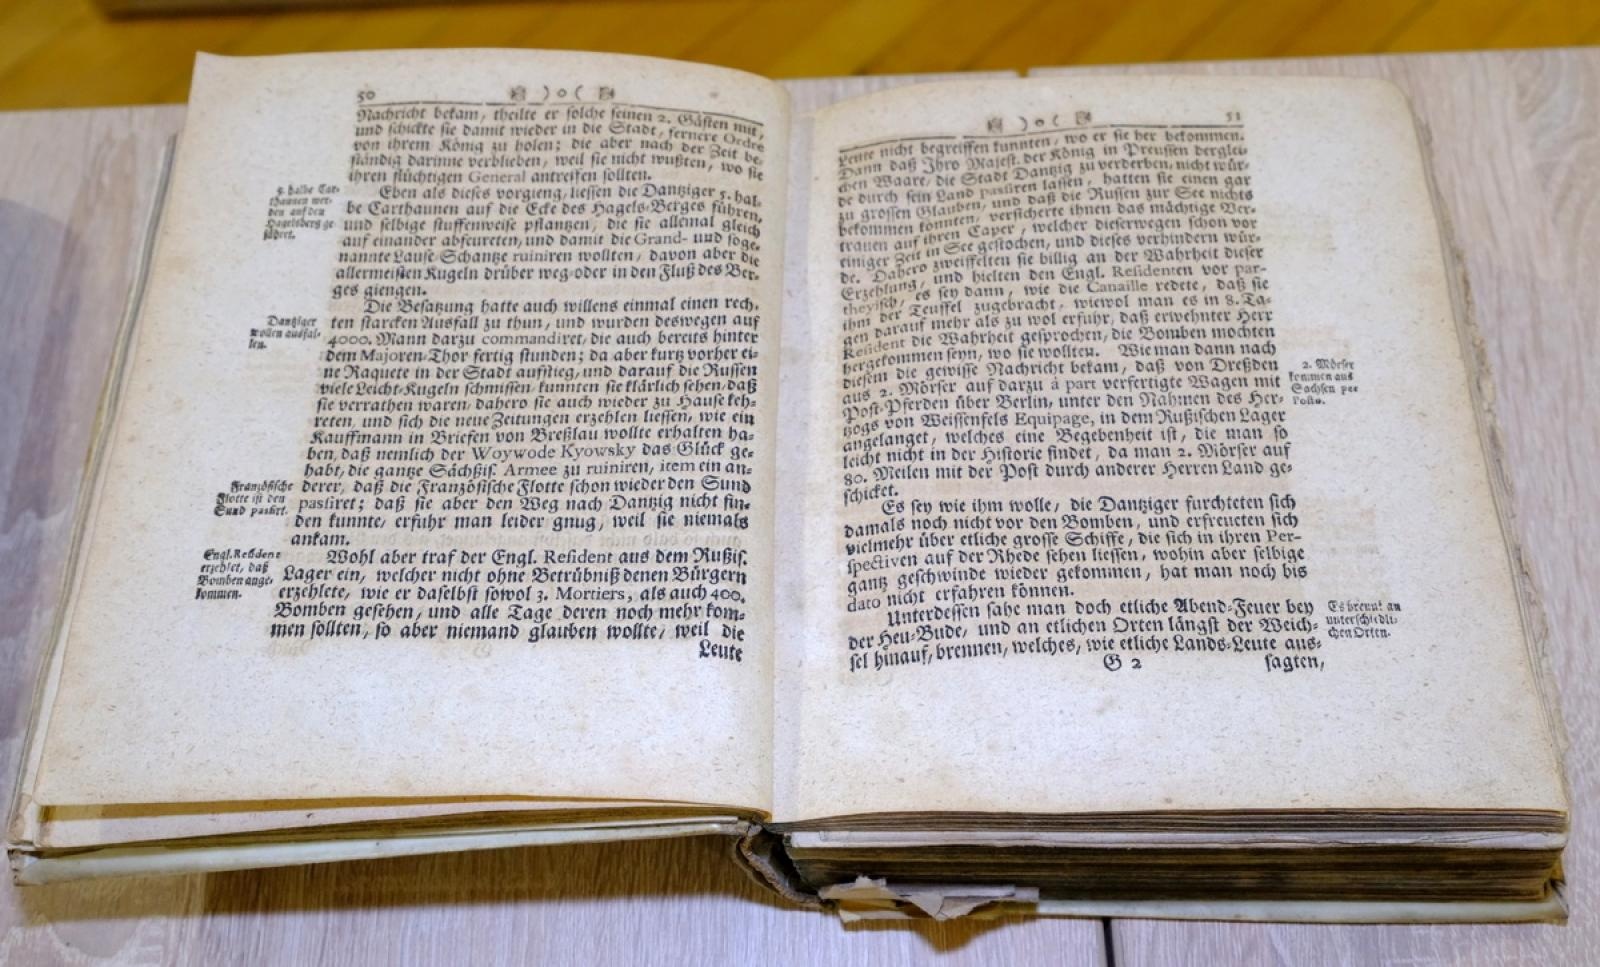 50 ) o (
Nachricht bekam, theilte er solche seinen 2. Gästen mit,
und schickte sie damit wieder in die Stadt, fernere Ordre
von ihrem König zu holen; die aber nach der Zeit be-
ständig darinne verblieben, weil sie nicht wußten, wo sie
ihren flüchtigen General antreffen sollten.
5. halbe Car-
thaunen wer-
den auf den
Hagelsberg ge
führet.
Eben als dieses vorgieng, liessen die Dantziger 5. hal-
be Carthaunen auf die Ecke des Hagels-Berges führen,
und selbige stuffenweise pflantzen, die sie allemal gleich
auf einander abfeureten, und damit die Grand- und soge-
nannte Lause-Schantze ruiniren wollten, davon aber die
allermeisten Kugeln drüber weg-oder in den Fluß des Ber-
ges giengen.
Dantziger
wollen ausfal-
len.
Die Besatzung hatte auch willens einmal einen rech-
ten starcken Ausfall zu thun, und wurden deswegen auf
4000. Mann darzu commandiret, die auch bereits hinter
dem Majoren-Thor fertig stunden; da aber kurtz vorher ei-
ne Raquete in der Stadt aufstieg, und darauf die Russen
viele Leicht-Kugeln schmissen, kunnten sie klärlich sehen, daß
sie verrathen waren, dahero sie auch wieder zu Hause keh-
reten, und sich die neue Zeitungen erzehlen liessen, wie ein
Kauffmann in Briefen von Breßlau wollte erhalten ha-
ben, daß nemlich der Woywode Kyowsky das Glück ge-
habt, die gantze Sächßis. Armee zu ruiniren, item ein an-
Französische
Flotte ist den
Sund passirt.
derer, daß die Französische Flotte schon wieder den Sund
passiret; daß sie aber den Weg nach Dantzig nicht fin-
den kunnte, erfuhr man leider gnug, weil sie niemals
ankam.
Engl. Resident
erzehlet, daß
Bomben ange-
kommen.
Wohl aber traf der Engl. Resident aus dem Rußis.
Lager ein, welcher nicht ohne Betrübniß denen Bürgern
erzehlete, wie er daselbst sowol 3. Mortiers, als auch 400.
Bomben gesehen, und alle Tage deren noch mehr kom-
men sollten, so aber niemand glauben wollte, weil die
Leute
) o ( 51
Leute nicht begreiffen kunnten, wo er sie her bekommen.
Dann daß Ihro Majest. der König in Preussen derglei-
chen Waare, die Stadt Dantzig zu verderben, nicht wür-
de durch sein Land passiren lassen, hatten sie einen gar
zu grossen Glauben, und daß die Russen zur See nichts
bekommen konnten, versicherte ihnen das mächtige Ver-
trauen auf ihren Caper, welcher dieserwegen schon vor
einiger Zeit in See gestochen, und dieses verhindern wür-
de. Dahero zweiffelten sie billig an der Wahrheit dieser
Erzehlung, und hielten den Engl. Residenten vor par-
theyisch, es sey dann, wie die Canaille redete, daß sie
ihm der Teuffel zugebracht, wiewol man es in 8. Ta-
gen darauf mehr als zu wol erfuhr, daß erwehnter Herr
Resident die Wahrheit gesprochen, die Bomben mochten
hergekommen seyn, wo sie wollten. Wie man dann nach
diesem die gewisse Nachricht bekam, daß von Dreßden
2. Mörser
kommen aus
Sachsen per
Posto.
aus 2. Mörser auf darzu à part verfertigte Wagen mit
Post-Pferden über Berlin, unter den Nahmen des Her-
tzogs von Weissenfels Equipage, in dem Rußischen Lager
angelanget, welches eine Begebenheit ist, die man so
leicht nicht in der Historie findet, da man 2. Mörser auf
80. Meilen mit der Post durch anderer Herren Land ge-
schicket.
Es sey wie ihm wolle, die Dantziger furchteten sich
damals noch nicht vor den Bomben, und erfreueten sich
vielmehr über etliche grosse Schiffe, die sich in ihren Per-
spectiven auf der Rhede sehen liessen, wohin aber selbige
gantz geschwinde wieder gekommen, hat man noch bis
dato nicht erfahren können.
Es brennt an
unterschiedli-
chen Orten.
Unterdessen sahe man doch etliche Abend-Feuer bey
der Heu-Bude, und an etlichen Orten längst der Weich-
sel hinauf, brennen, welches, wie etliche Lands-Leute aus-
G 2 sagten,